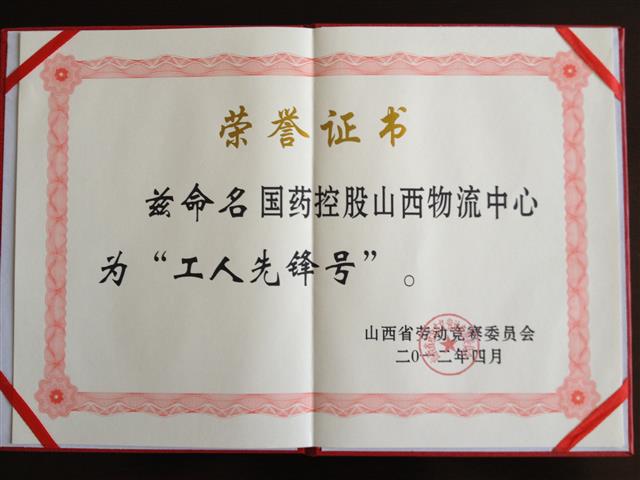 荣誉证书
兹命名国药控股山西物流中心
为“工人先锋号”。
山西省劳动竞赛委员会
二〇一二年四月